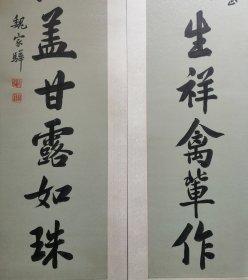 生祥禽輦作
盖甘露如珠
魏家驊